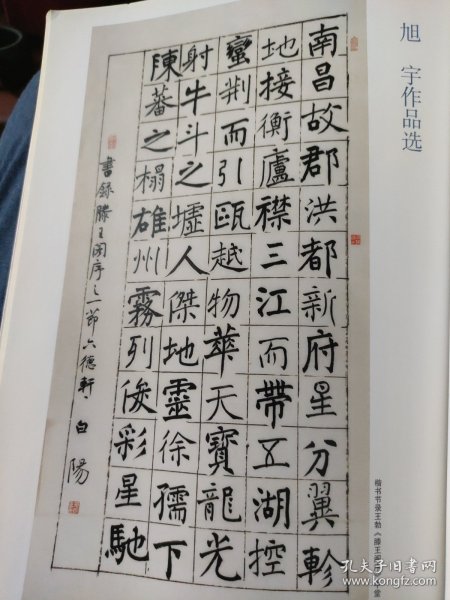 旭宇作品选
南昌故郡洪都新府星分翼軫
地接衡廬襟三江而帶五湖控
蠻荆而引甌越物華天寶龍光
射牛斗之墟人傑地靈徐孺下
陳蕃之榻雄州霧列俊彩星馳
書錄滕王閣序之一節六德軒 白陽
楷书节录王勃《滕王
孔夫子旧书网